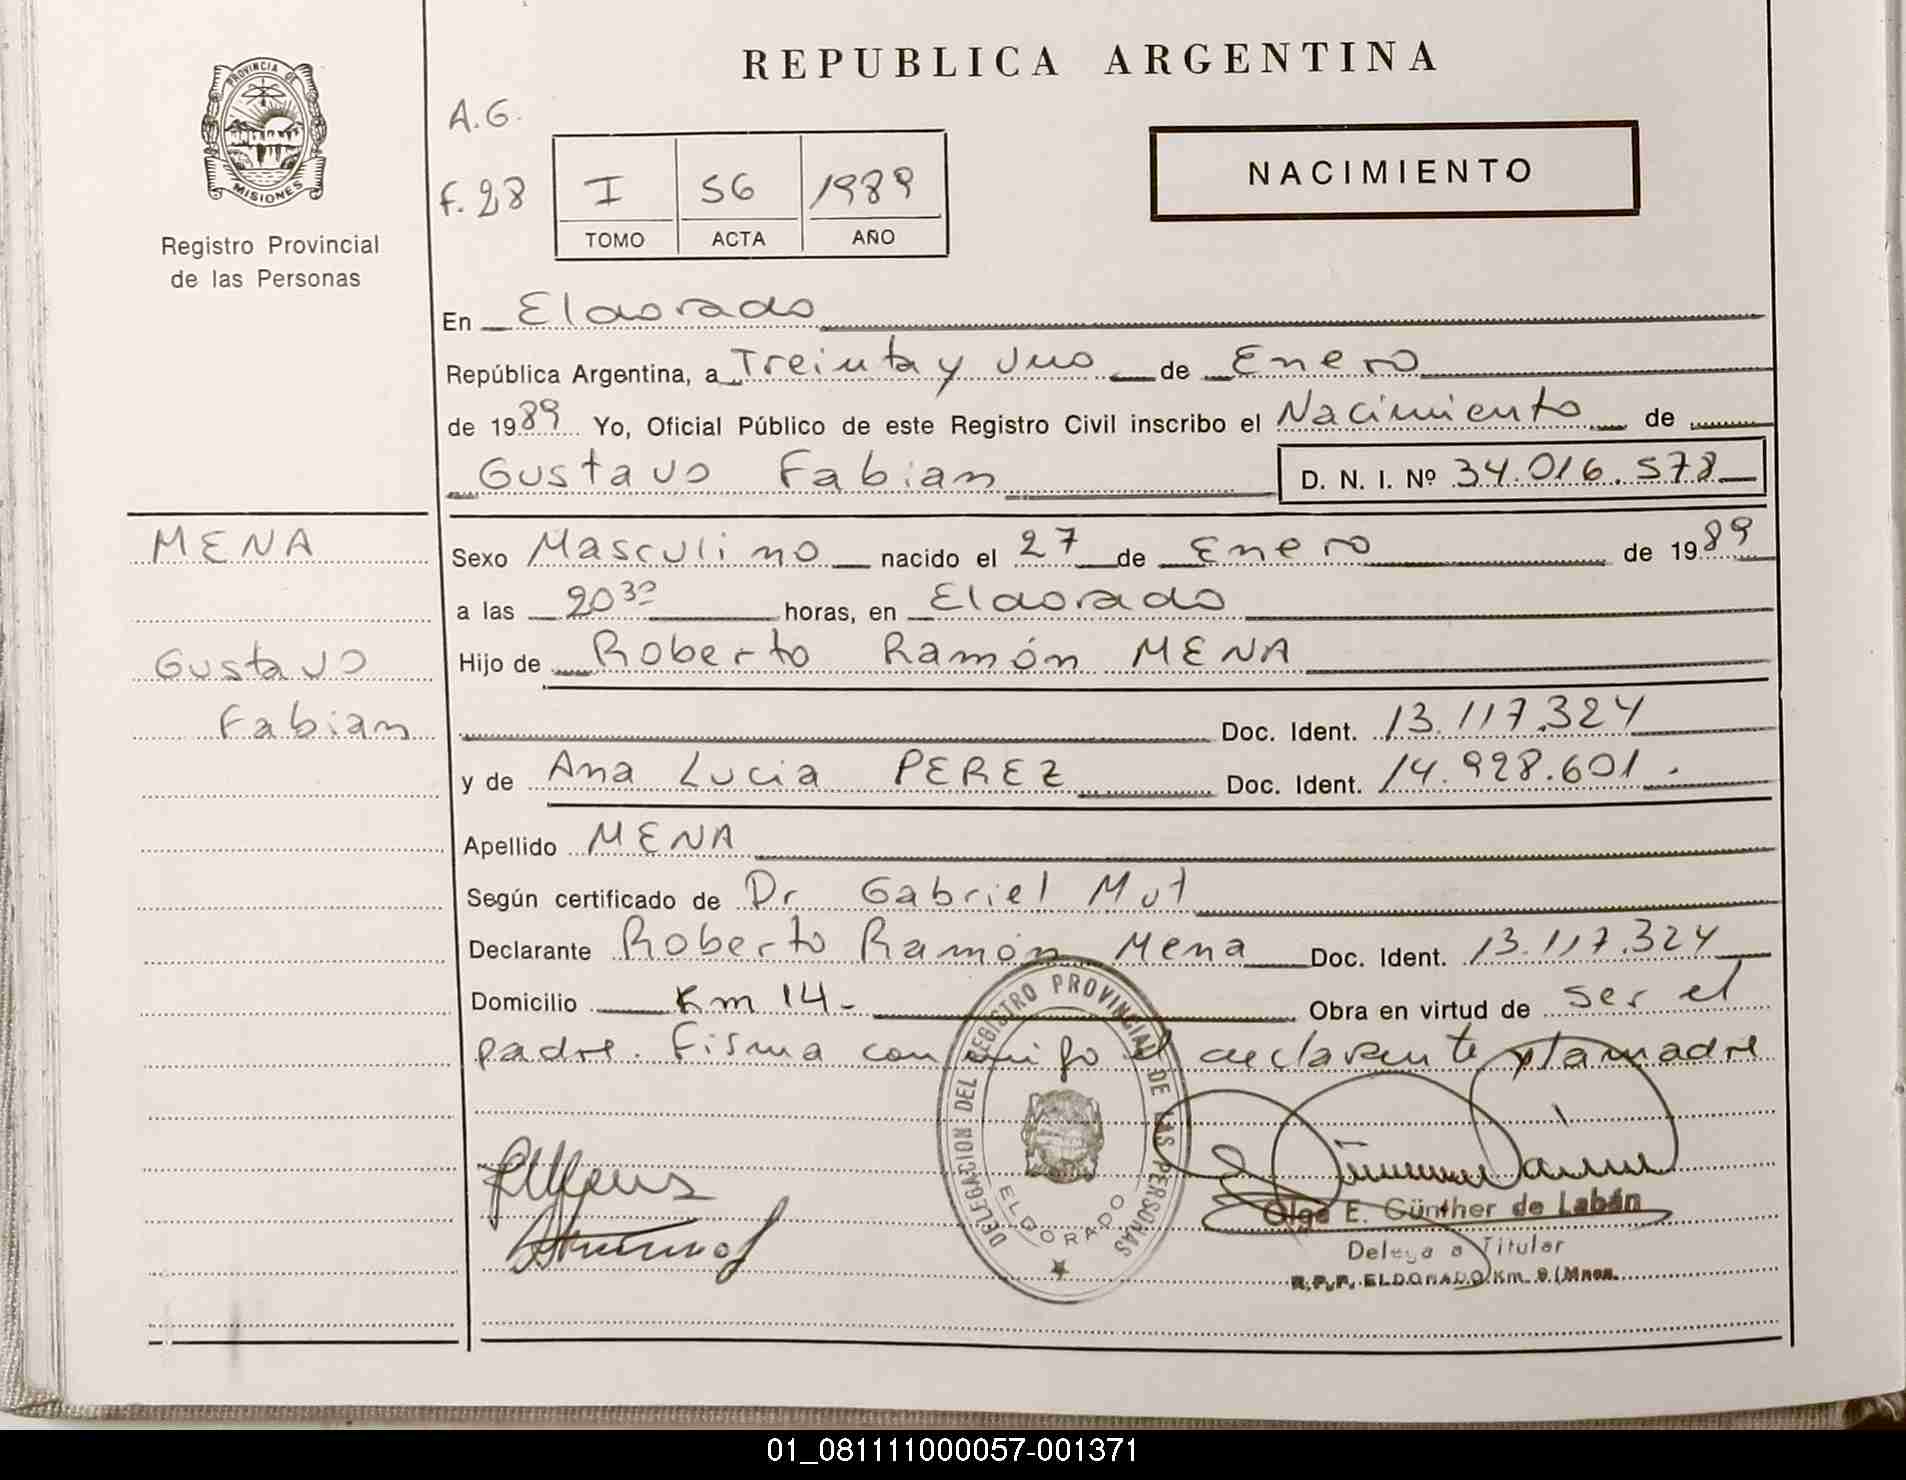 REPUBLICA ARGENTINA
PROVINCIA DE
MISIONES
Registro Provincial
de las Personas
A.G.
F. 28
I 56 1989
TOMO ACTA AÑO
NACIMIENTO
En Eldorado
República Argentina, a Treinta y uno de Enero
de 1989 Yo, Oficial Público de este Registro Civil inscribo el Nacimiento de
Gustavo Fabian D. N. I. Nº 34.016.578
MENA
Gustavo
Fabian
Sexo Masculino nacido el 27 de Enero de 1989
a las 20³⁰ horas, en Eldorado
Hijo de Roberto Ramón MENA
Doc. Ident. 13.117.324
y de Ana Lucia PEREZ Doc. Ident. 14.928.601.
Apellido MENA
Según certificado de Dr Gabriel Mut
Declarante Roberto Ramón Mena Doc. Ident. 13.117.324
Domicilio Km 14- Obra en virtud de ser el
padre. Firma conmigo el declarante y la madre
DELEGACION DEL REGISTRO PROVINCIAL DE LAS PERSONAS
ELDORADO
Olga E. Günther de Labán
Delegada Titular
R.P.P. ELDORADO Km. 9 (Mnes.
01_081111000057-001371